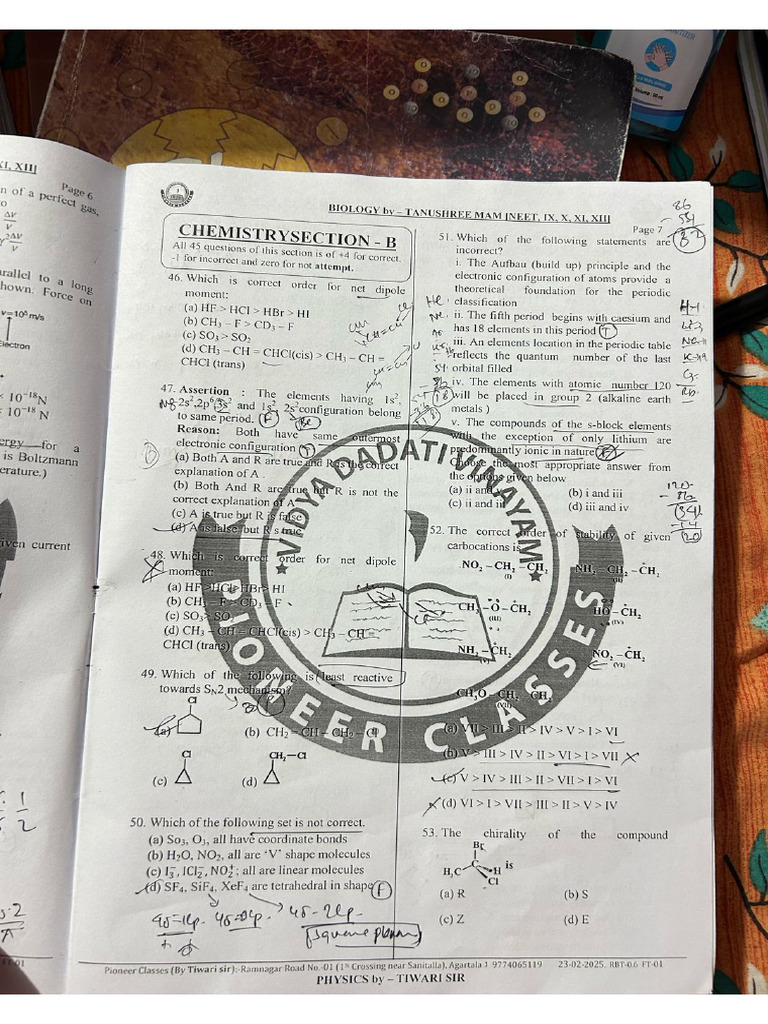 SANITIZER
XI, XII]
Page 6
n of a perfect gas,
to
ΔV
V
γ²ΔV
V
arallel to a long
hown. Force on
v=10⁵ m/s
Electron
× 10⁻¹⁸N
× 10⁻¹⁸ N
ergy for a
is Boltzmann
erature.)
iven current
1
2
FT-01
BIOLOGY by – TANUSHREE MAM [NEET, IX, X, XI, XII]
Page 7
CHEMISTRYSECTION - B
All 45 questions of this section is of +4 for correct.
-1 for incorrect and zero for not attempt.
46. Which is correct order for net dipole
moment:
(a) HF > HCl > HBr > HI
(b) CH₃ – F > CD₃ – F
(c) SO₃ > SO₂
(d) CH₃ – CH = CHCl(cis) > CH₃ – CH =
CHCl (trans)
47. Assertion : The elements having 1s²,
2s²,2p⁶,3s² and 1s², 2s² configuration belong
to same period. (F)
Be
Reason: Both have same outermost
electronic configuration (T)
(a) Both A and R are true and R is the correct
explanation of A .
(b) Both And R are true but R is not the
correct explanation of A
(c) A is true but R is false
(d) A is false but R s true
48. Which is correct order for net dipole
moment:
(a) HF > HCl > HBr > HI
(b) CH₃ – F > CD₃ – F
(c) SO₃ > SO₂
(d) CH₃ – CH = CHCl(cis) > CH₃ – CH =
CHCl (trans)
49. Which of the following is least reactive
towards Sₙ2 mechanism?
Cl
(a)
(b) CH₂ – CH – CH₂ – Cl
Cl
CH₂–Cl
(c)
(d)
50. Which of the following set is not correct.
(a) So₃, O₃, all have coordinate bonds
(b) H₂O, NO₂, all are 'V' shape molecules
(c) I₃⁻, ICl₂⁻, NO₂⁺; all are linear molecules
(d) SF₄, SiF₄, XeF₄ are tetrahedral in shape (F)
4σ-2lp
(square planar)
86
- 54
32
51. Which of the following statements are
incorrect?
i. The Aufbau (build up) principle and the
electronic configuration of atoms provide a
theoretical foundation for the periodic
classification
ii. The fifth period begins with caesium and
has 18 elements in this period (T)
iii. An elements location in the periodic table
reflects the quantum number of the last
orbital filled
iv. The elements with atomic number 120
will be placed in group 2 (alkaline earth
metals )
v. The compounds of the s-block elements
with the exception of only lithium are
predominantly ionic in nature
Choose the most appropriate answer from
the options given below
(a) ii and
(b) i and iii
(c) ii and iii
(d) iii and iv
He
Ne
H-1
Li-3
Na-11
K-19
Rb
120
- 86
34
- 14
20
52. The correct order of stability of given
carbocations is
NO₂ – CH₂ – CH₂
(I)
NH₂ – CH₂ – CH₂
(II)
CH₃ – O – CH₂
(III)
HO – CH₂
(IV)
NH₂ – CH₂
(V)
NO₂ – CH₂
(VI)
CH₃O – CH₂ CH₂
(VII)
(a) VII > III > II > IV > V > I > VI
(b) V > III > IV > II > VI > I > VII
(c) V > IV > III > II > VII > I > VI
(d) VI > I > VII > III > II > V > IV
53. The chirality of the compound
Br
H₃C C H is
Cl
(a) R
(b) S
(c) Z
(d) E
VIDYA DADATI VINAYAM
PIONEER CLASSES
Pioneer Classes (By Tiwari sir):-Ramnagar Road No.-01 (1ˢᵗ Crossing near Sanitalla), Agartala 9774065119 23-02-2025. RBT-0.6 FT-01
PHYSICS by – TIWARI SIR